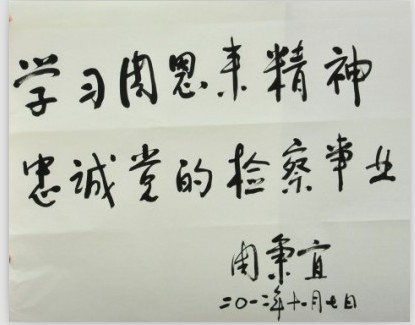 学习周恩来精神
忠诚党的检察事业
周秉宜
二〇一二年十一月七日